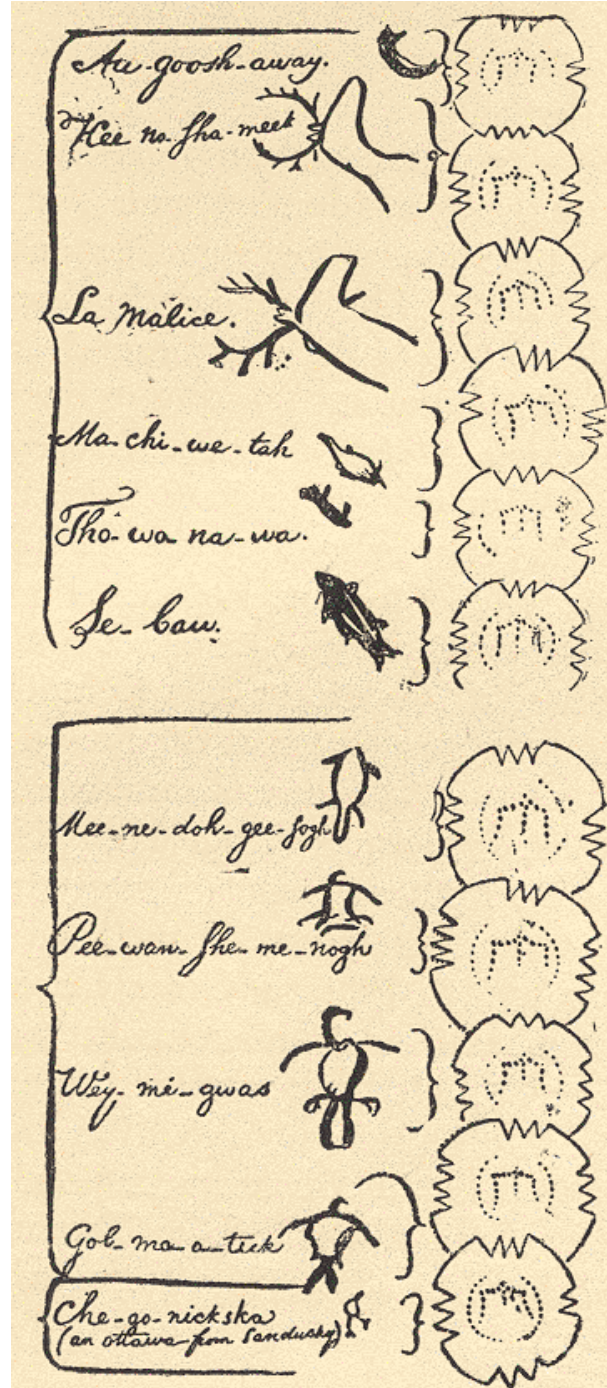 Au-goosh-away.
Kee no sha-meek
La Malice.
Ma-chi-we-tah
Tho-wa na-wa.
Se-baw.
Mee-ne-doh-gee-sogh
Pee-wan-she-me-nogh
Wey-me-gwas
Gob-ma-a-tick
Che-go-nickska
(an ottawa from Sandusky)